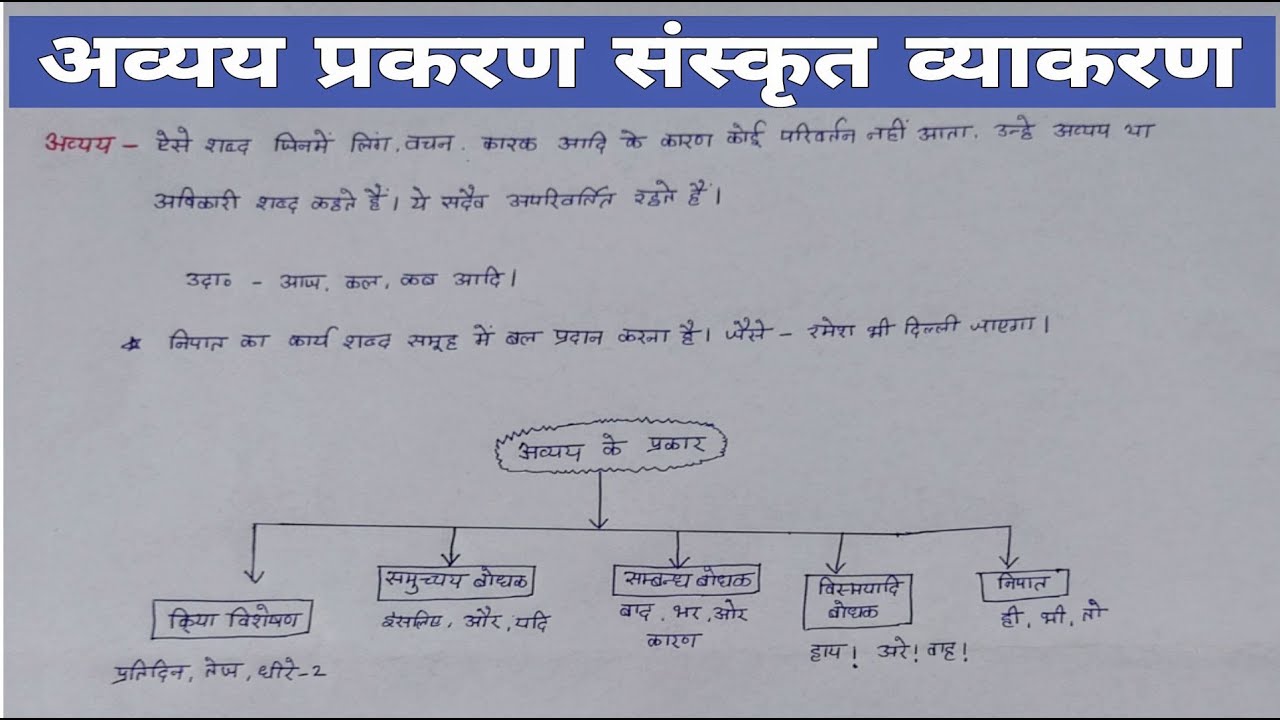 अव्यय प्रकरण संस्कृत व्याकरण
अव्यय - ऐसे शब्द जिनमें लिंग, वचन, कारक आदि के कारण कोई परिवर्तन नहीं आता, उन्हे अव्यय या
अविकारी शब्द कहते हैं। ये सदैव अपरिवर्तित रहते हैं।
उदा० - आज, कल, कब आदि।
* निपात का कार्य शब्द समूह में बल प्रदान करना है। जैसे - रमेश भी दिल्ली जाएगा।
अव्यय के प्रकार
क्रिया विशेषण
प्रतिदिन, तेज, धीरे-2
समुच्चय बोधक
इसलिए, और, यदि
सम्बन्ध बोधक
बाद, भर, ओर
कारण
विस्मयादि
बोधक
हाय! अरे! वाह!
निपात
ही, भी, तो